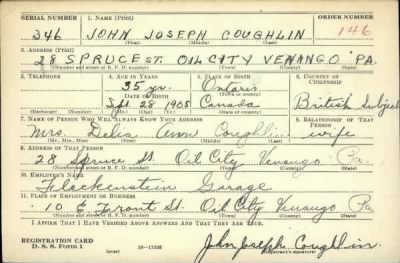 SERIAL NUMBER 1. NAME (Print) ORDER NUMBER
346 JOHN JOSEPH COUGHLIN 146
(First) (Middle) (Last)
2. ADDRESS (Print)
28 SPRUCE ST. OIL CITY VENANGO PA.
(Number and street or R. F. D. number) (Town) (County) (State)
3. TELEPHONE 4. AGE IN YEARS 5. PLACE OF BIRTH 6. COUNTRY OF CITIZENSHIP
35 yr. Ontario
DATE OF BIRTH
Sept. 28 1905 Canada British Subject
(Exchange) (Number) (Mo.) (Day) (Yr.) (State or county)
7. NAME OF PERSON WHO WILL ALWAYS KNOW YOUR ADDRESS 8. RELATIONSHIP OF THAT PERSON
Mrs. Delia Ann Coughlin wife
(Mr., Mrs., Miss) (First) (Middle) (Last)
9. ADDRESS OF THAT PERSON
28 Spruce St. Oil City Venango Pa.
(Number and street or R. F. D. number) (Town) (County) (State)
10. EMPLOYER'S NAME
Flackenstein Garage
11. PLACE OF EMPLOYMENT OR BUSINESS
10 E. Front St. Oil City Venango Pa
(Number and street or R. F. D. number) (Town) (County) (State)
I AFFIRM THAT I HAVE VERIFIED ABOVE ANSWERS AND THAT THEY ARE TRUE.
REGISTRATION CARD
D. S. S. Form 1 16—17105 John Joseph Coughlin.
(Registrant's signature)